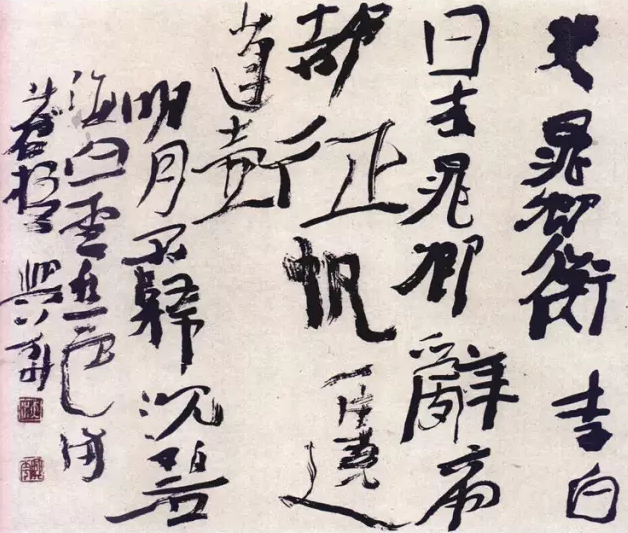 哭晁卿衡 李白
日本晁卿辭帝
都征帆一片遶
蓬壺
明月不歸沈碧
海白雲愁色滿
蒼梧